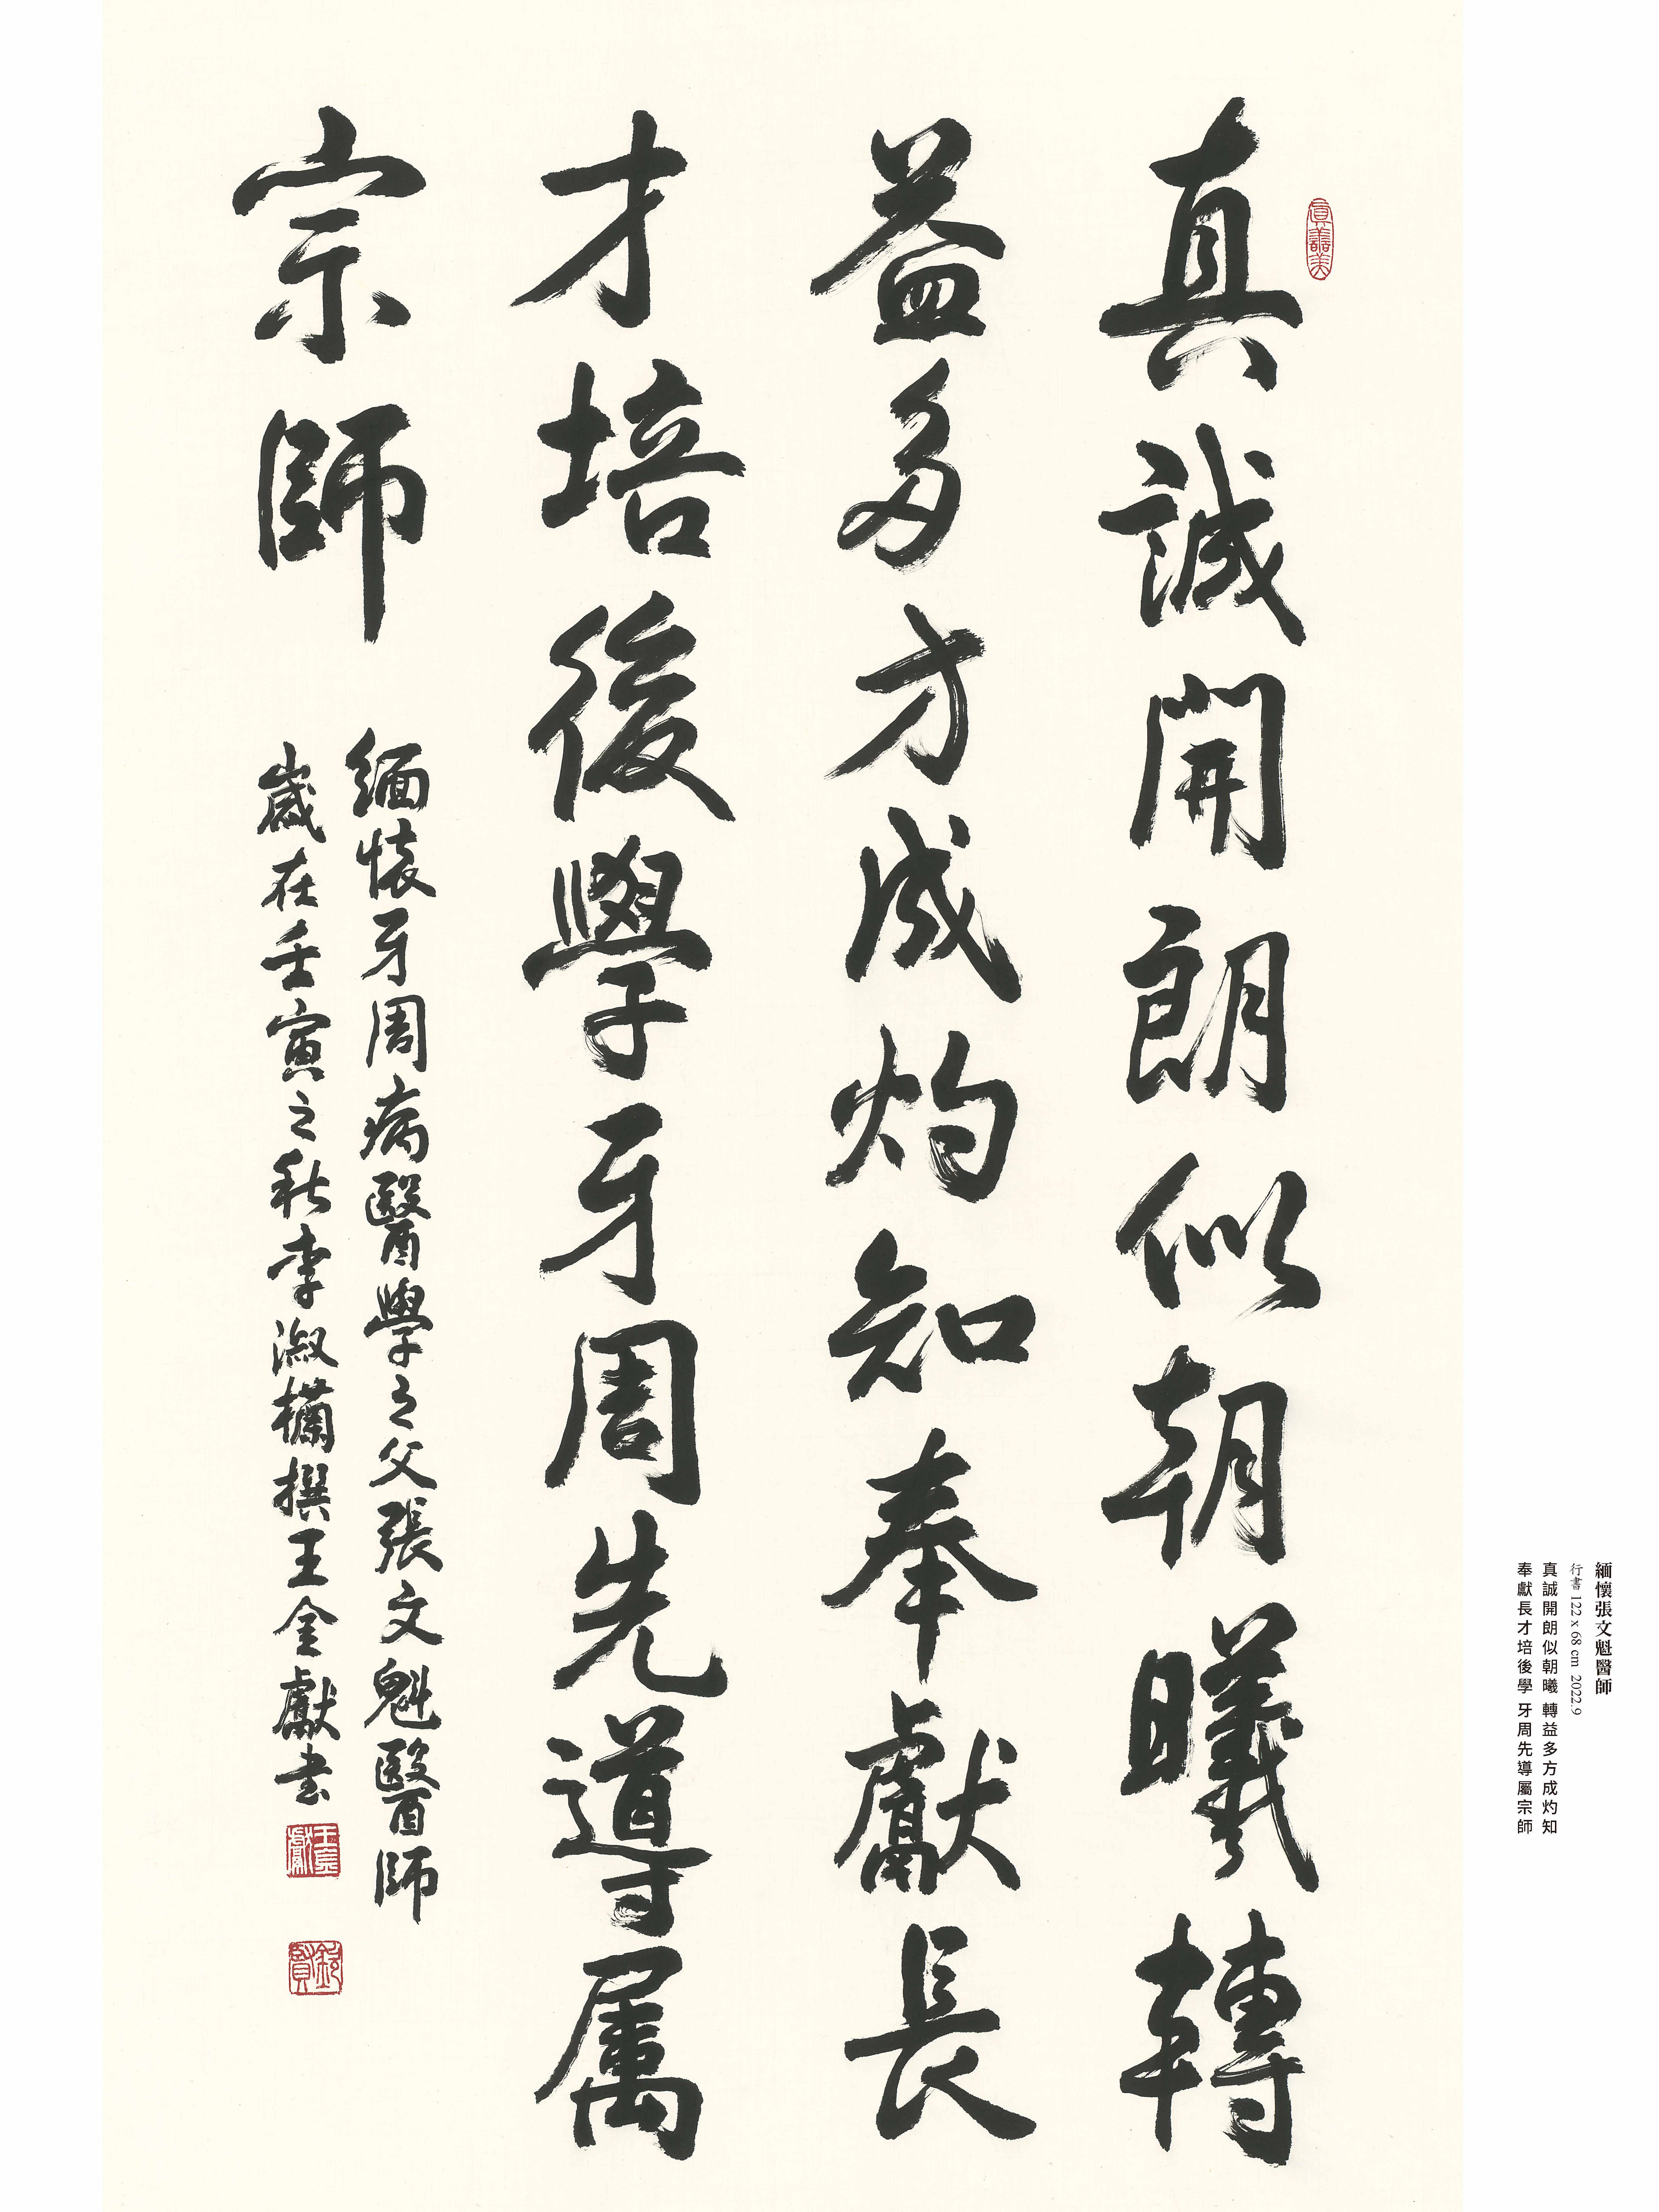 緬懷張文魁醫師
行書 122 x 68 cm 2022.9
真誠開朗似朝曦 轉益多方成灼知
奉獻長才培後學 牙周先導屬宗師
真善美
真誠開朗似朝曦轉
益多方成灼知奉獻長
才培後學牙周先導属
宗師
緬懷牙周病醫學之父張文魁醫師
歲在壬寅之秋李淑欗撰王金獻书